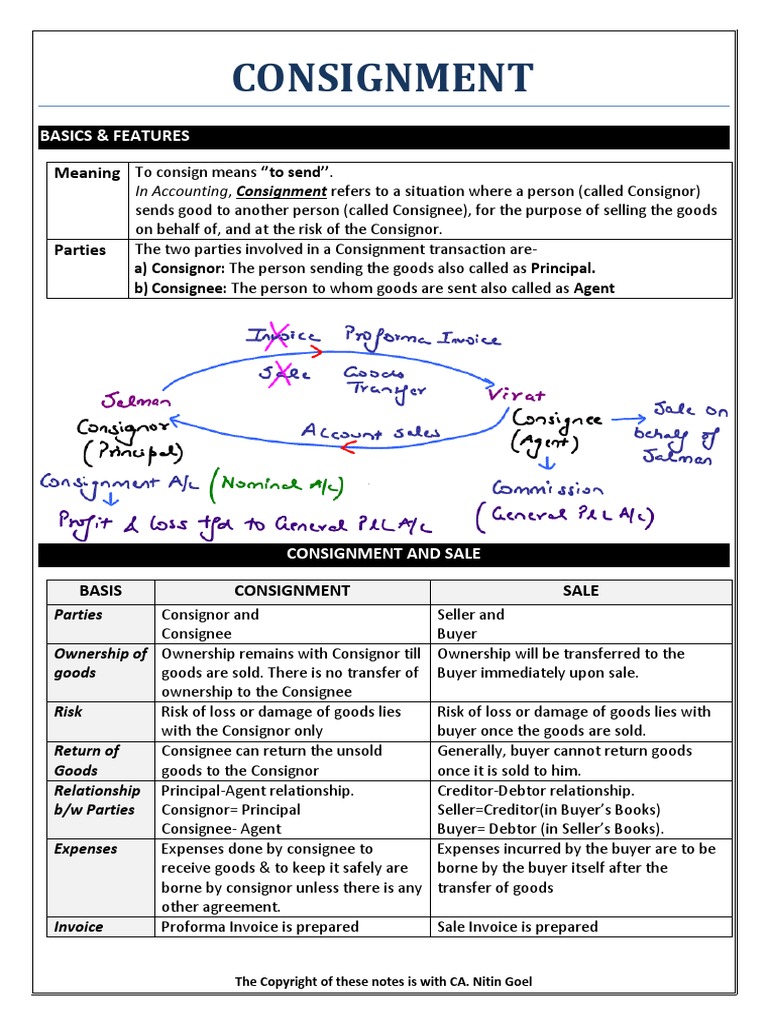 CONSIGNMENT
BASICS & FEATURES
Meaning To consign means ‘’to send’’.
In Accounting, Consignment refers to a situation where a person (called Consignor)
sends good to another person (called Consignee), for the purpose of selling the goods
on behalf of, and at the risk of the Consignor.
Parties The two parties involved in a Consignment transaction are-
a) Consignor: The person sending the goods also called as Principal.
b) Consignee: The person to whom goods are sent also called as Agent
Invoice Proforma Invoice
Sale Goods
Transfer
Salman
Consignor
(Principal)
Virat
Consignee
(Agent)
Sale on
behalf of
Salman
Account sales
Consignment A/c (Nominal A/c)
Profit & loss tfd to General P&L A/c
Commission
(General P&L A/c)
CONSIGNMENT AND SALE
BASIS CONSIGNMENT SALE
Parties Consignor and Seller and
Consignee Buyer
Ownership of Ownership remains with Consignor till Ownership will be transferred to the
goods goods are sold. There is no transfer of Buyer immediately upon sale.
ownership to the Consignee
Risk Risk of loss or damage of goods lies Risk of loss or damage of goods lies with
with the Consignor only buyer once the goods are sold.
Return of Consignee can return the unsold Generally, buyer cannot return goods
Goods goods to the Consignor once it is sold to him.
Relationship Principal-Agent relationship. Creditor-Debtor relationship.
b/w Parties Consignor= Principal Seller=Creditor(in Buyer’s Books)
Consignee- Agent Buyer= Debtor (in Seller’s Books).
Expenses Expenses done by consignee to Expenses incurred by the buyer are to be
receive goods & to keep it safely are borne by the buyer itself after the
borne by consignor unless there is any transfer of goods
other agreement.
Invoice Proforma Invoice is prepared Sale Invoice is prepared
The Copyright of these notes is with CA. Nitin Goel